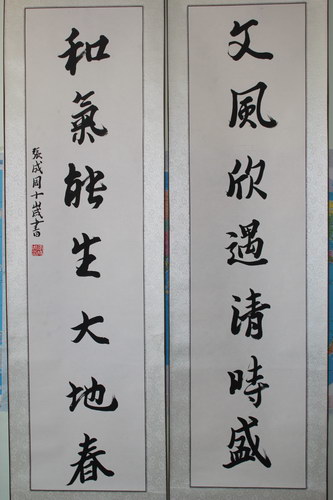 文風欣遇清時盛
和氣能生大地春
張成周十歲書